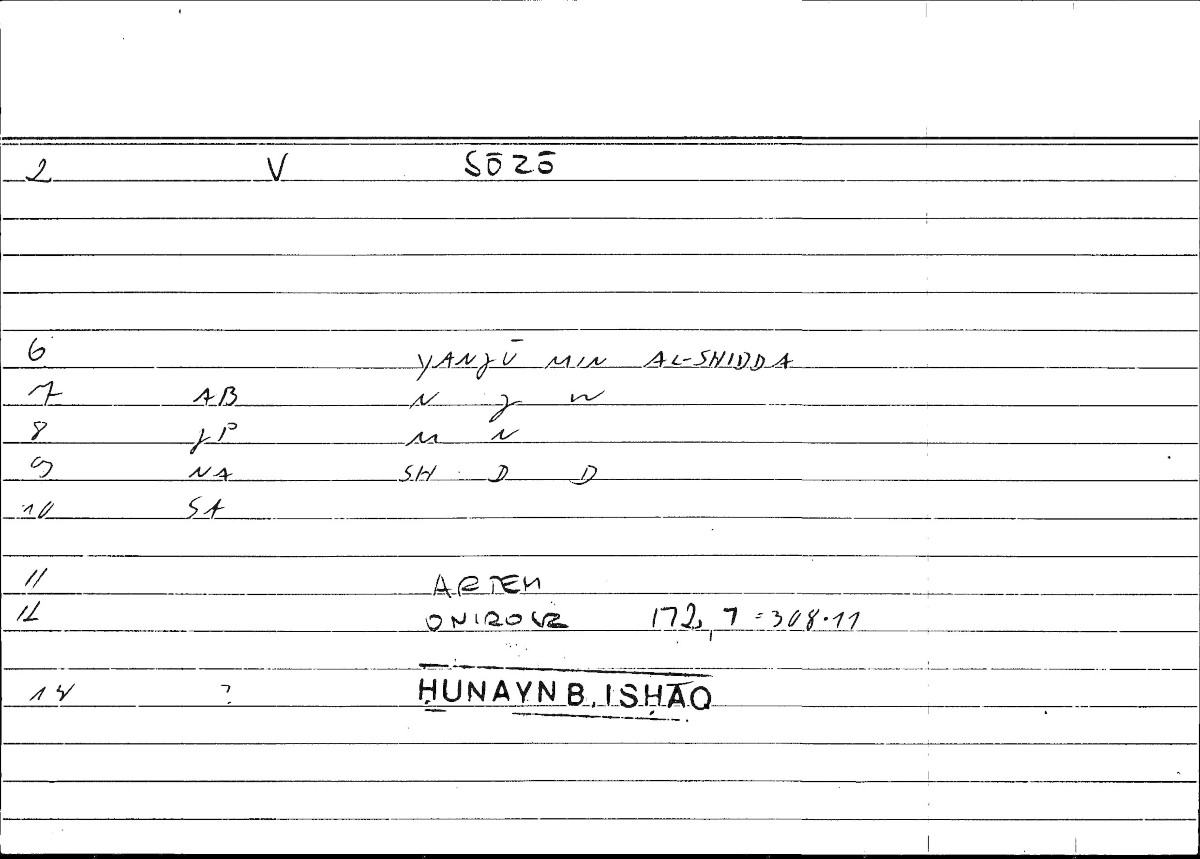 2 V SŌZŌ
6 YANJŪ MIN AL-SHIDDA
7 AB N J W
8 JP M N
9 NA SH D D
10 SA
11 ARTEM
12 ONIROCR 172,7 = 308.11
14 ? ḤUNAYN B. ISḤĀQ